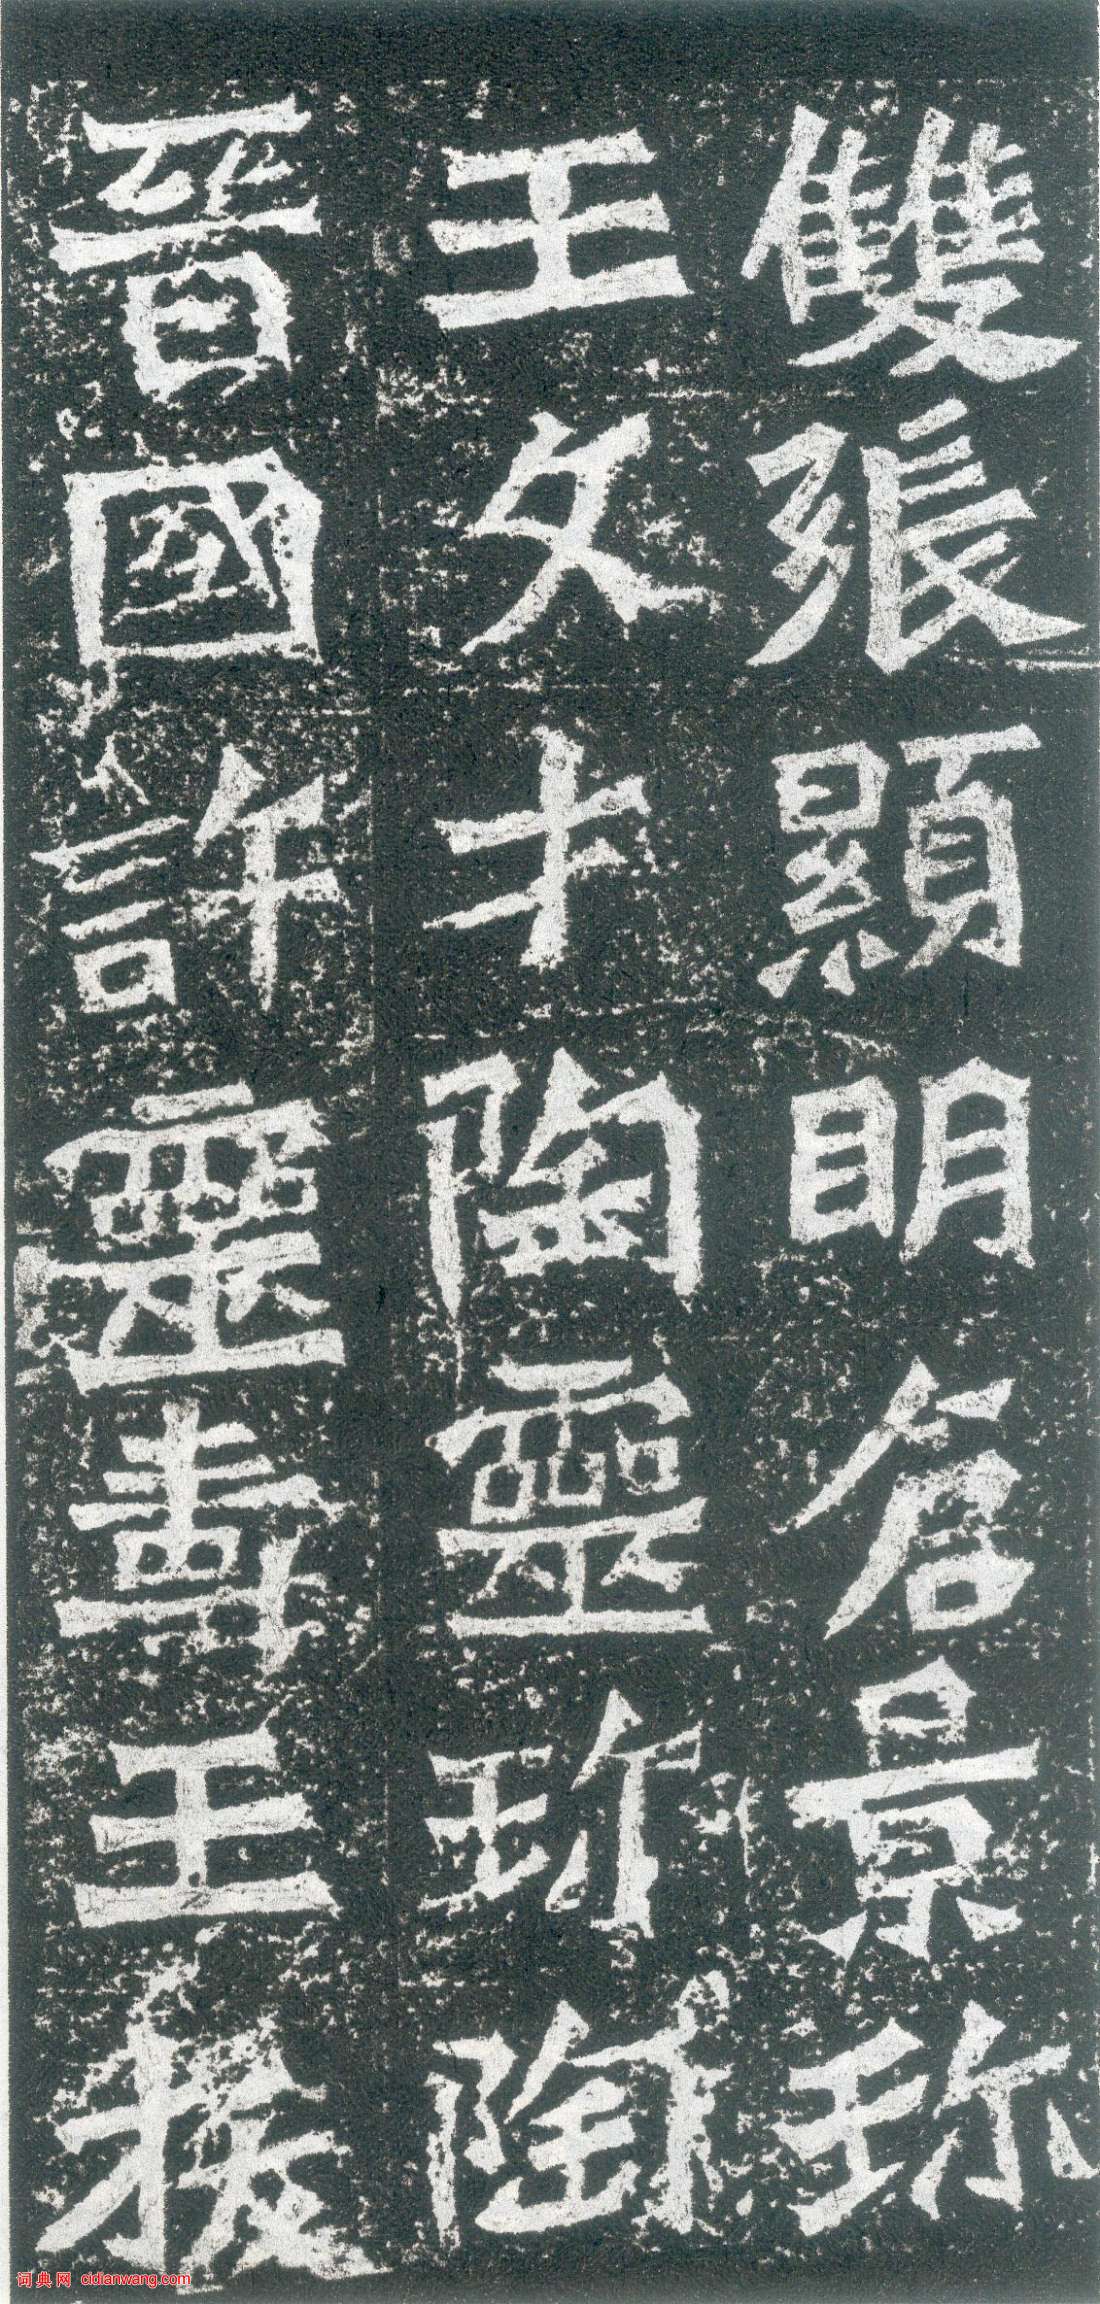 雙張顯明倉景珎
王文才陶靈珎陶
晉國許靈壽王援
词典网 cidianwang.com